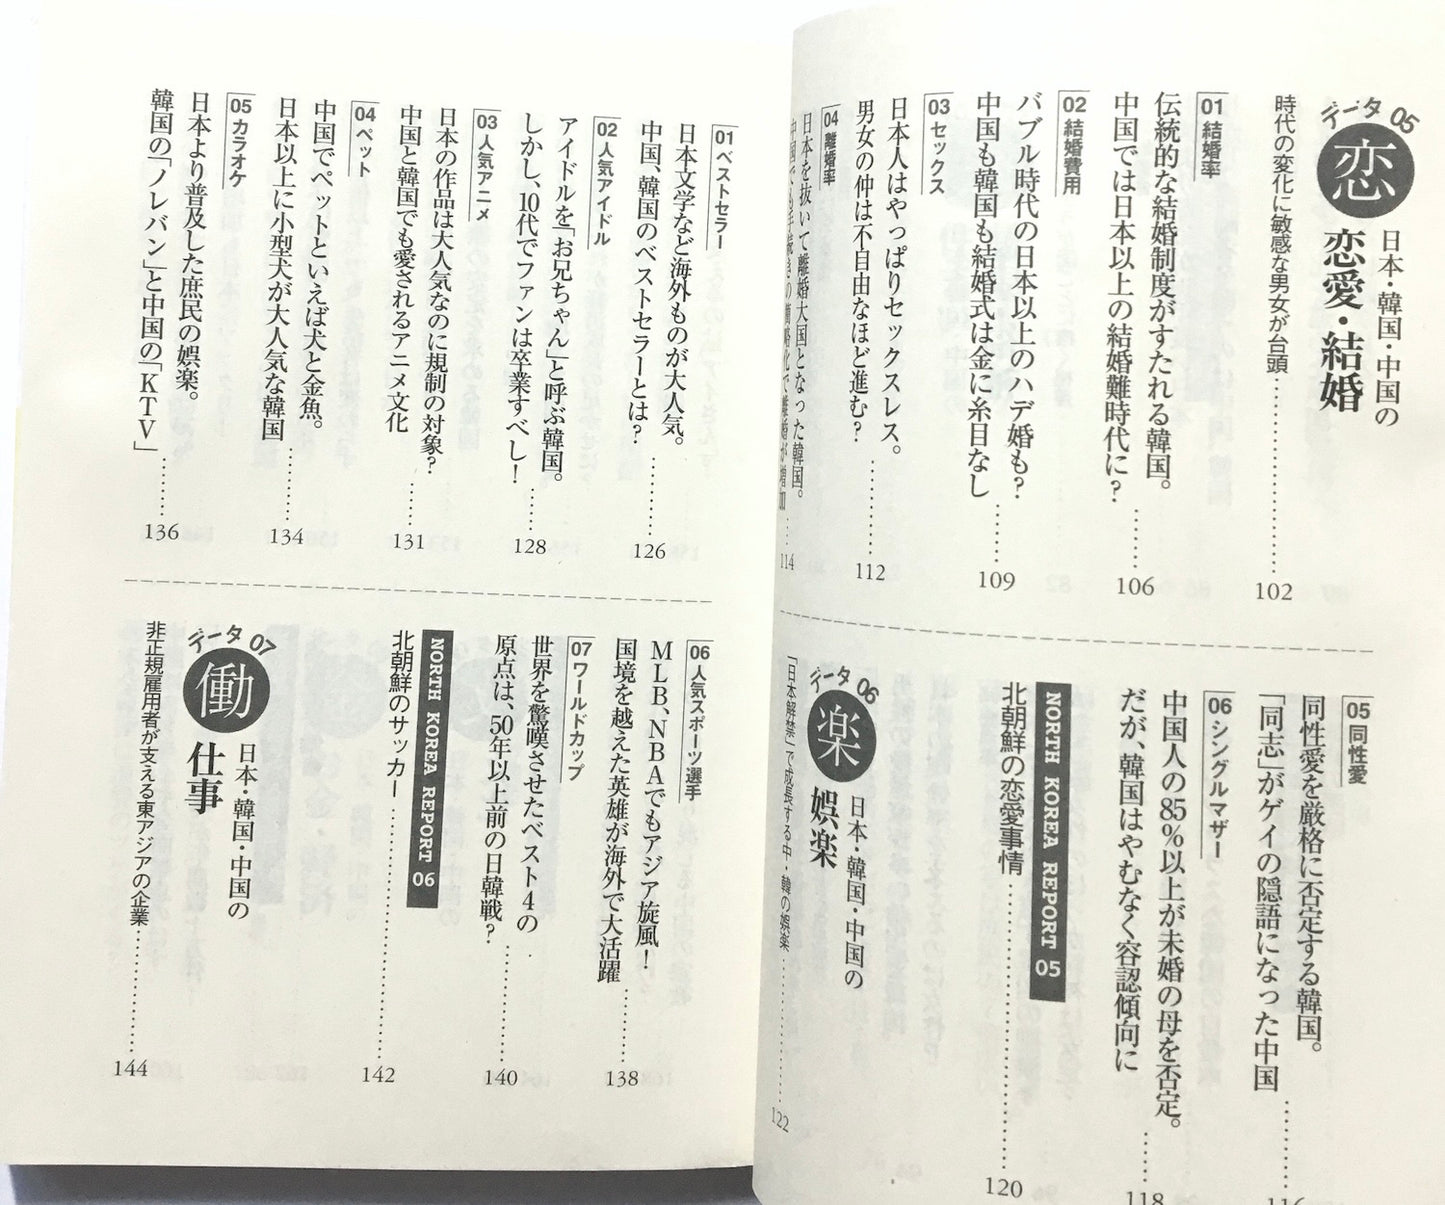 データ 05
恋
日本・韓国・中国の
恋愛・結婚
時代の変化に敏感な男女が台頭…………102
01 結婚率
伝統的な結婚制度がすたれる韓国。
中国では日本以上の結婚難時代に?……106
02 結婚費用
バブル時代の日本以上のハデ婚も?
中国も韓国も結婚式は金に糸目なし……109
03 セックス
日本人はやっぱりセックスレス。
男女の仲は不自由なほど進む?…………112
04 離婚率
日本を抜いて離婚大国となった韓国。
中国でも手続きの簡略化で離婚が増加……114
05 同性愛
同性愛を厳格に否定する韓国。
「同志」がゲイの隠語になった中国……116
06 シングルマザー
中国人の85%以上が未婚の母を否定。
だが、韓国はやむなく容認傾向に……118
NORTH KOREA REPORT 05
北朝鮮の恋愛事情…………120
データ 06
楽
日本・韓国・中国の
娯楽
「日本解禁」で成長する中・韓の娯楽…………122
01 ベストセラー
日本文学など海外ものが大人気。
中国、韓国のベストセラーとは?……126
02 人気アイドル
アイドルを「お兄ちゃん」と呼ぶ韓国。
しかし、10代でファンは卒業すべし!……128
03 人気アニメ
日本の作品は大人気なのに規制の対象?
中国と韓国でも愛されるアニメ文化……131
04 ペット
中国でペットといえば犬と金魚。
日本以上に小型犬が大人気な韓国……134
05 カラオケ
日本より普及した庶民の娯楽。
韓国の「ノレバン」と中国の「KTV」……136
06 人気スポーツ選手
MLB、NBAでもアジア旋風!
国境を越えた英雄が海外で大活躍……138
07 ワールドカップ
世界を驚嘆させたベスト4の
原点は、50年以上前の日韓戦?……140
NORTH KOREA REPORT 06
北朝鮮のサッカー…………142
データ 07
働
日本・韓国・中国の
仕事
非正規雇用者が支える東アジアの企業…………144